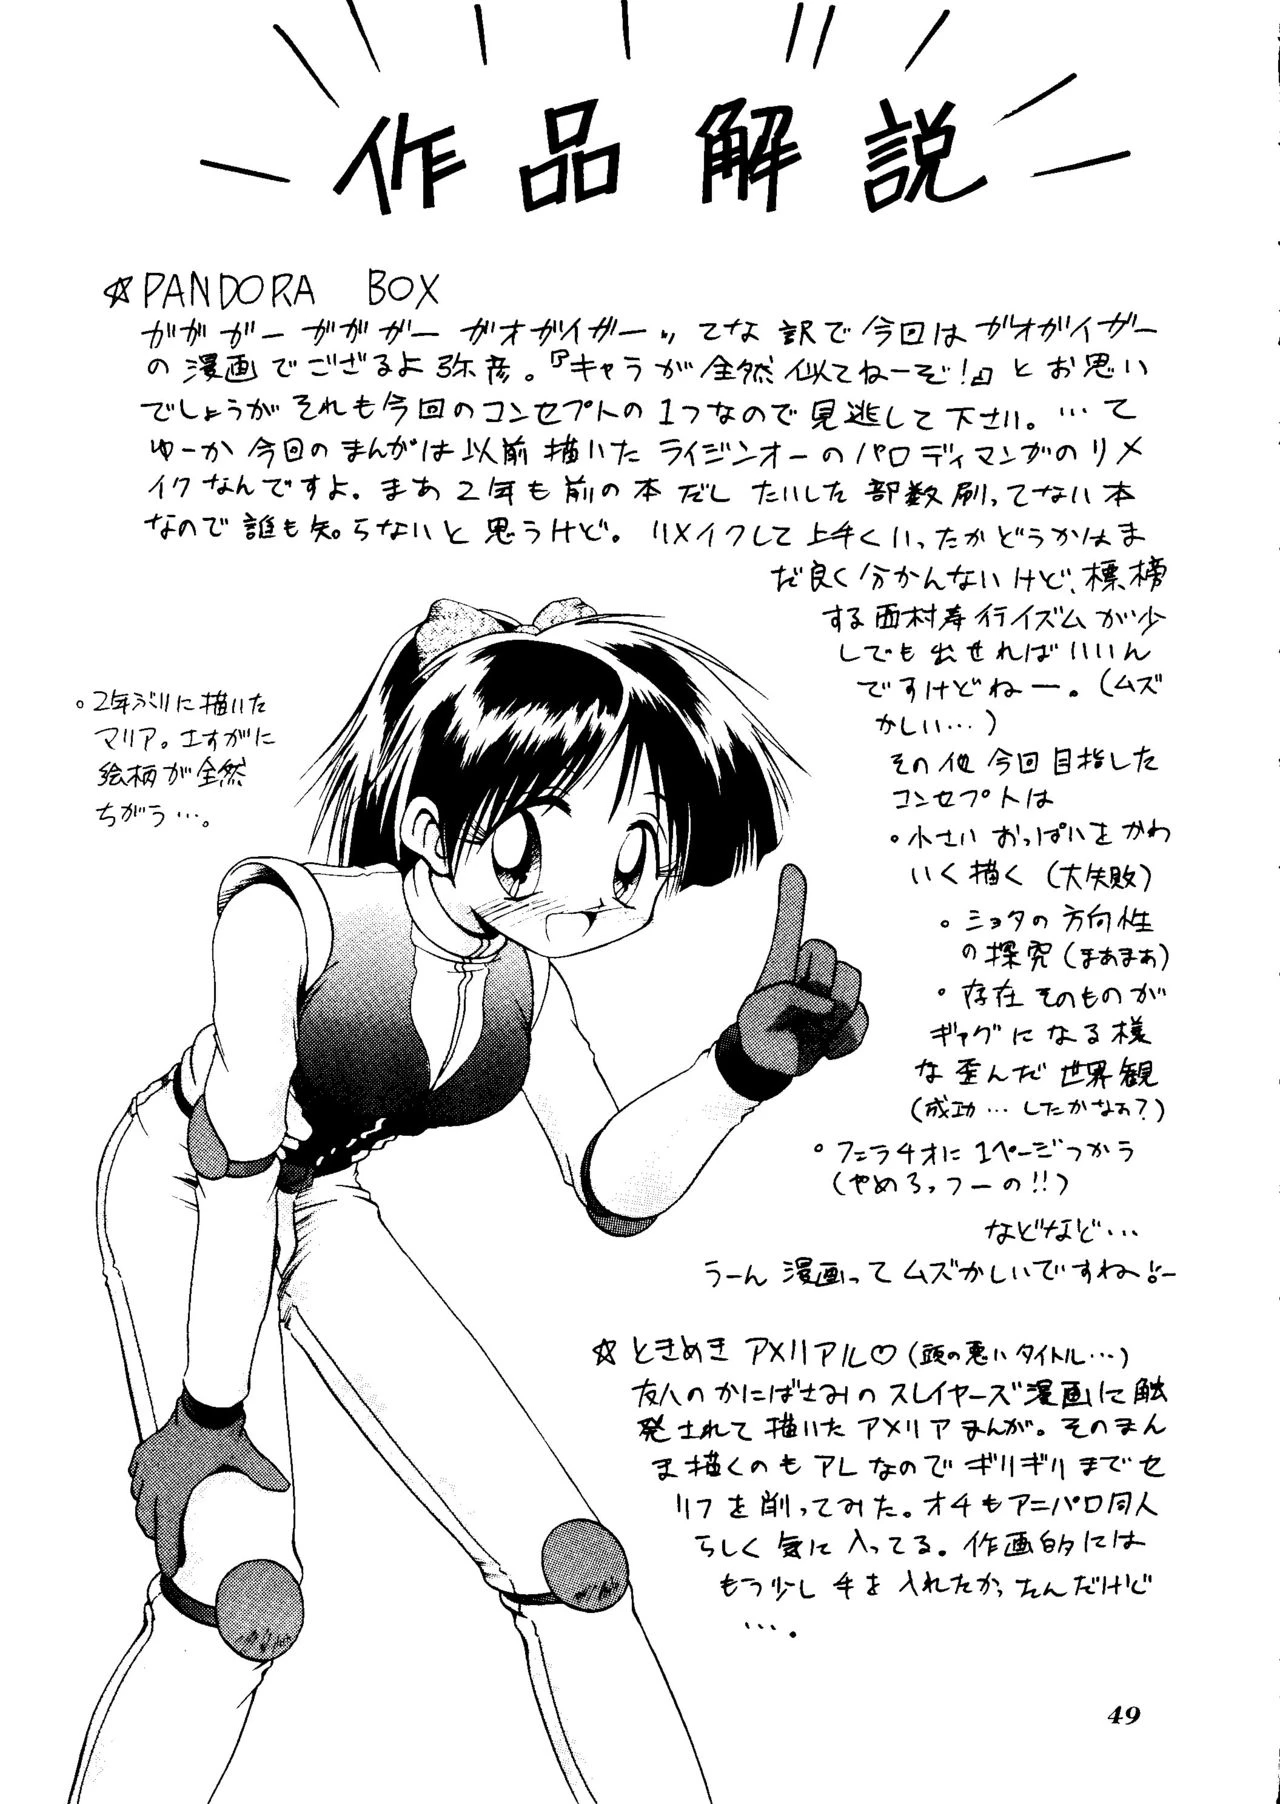 作品解説
☆PANDORA BOX
ガガガーガガガー ガオガイガー!! てな訳で今回はガオガイガー
の漫画でござるよ弥彦。『キャラが全然似てねーぞ!』とお思い
でしょうがそれも今回のコンセプトの1つなので見逃して下さい。…て
ゆーか今回のまんがは以前描いたライジンオーのパロディマンガのリメ
イクなんですよ。まあ2年も前の本だしたいした部数刷ってない本
なので誰も知らないと思うけど。リメイクして上手くいったかどうかはま
だ良く分かんないけど、標榜
する西村寿行イズムが少
しでも出せればいいん
ですけどねー。(ムズ
かしい…)
その他今回目指した
コンセプトは
。小さいおっぱいをかわ
いく描く(大失敗)
。ショタの方向性
の探究(まあまあ)
。存在そのものが
ギャグになる様
な歪んだ世界観
(成功…したかなぁ?)
。フェラチオに1ページつかう
(やめろっつーの!!)
などなど…
うーん漫画ってムズかしいですねー!
。2年ぶりに描いた
マリア。さすがに
絵柄が全然
ちがう…。
☆ときめきアメリアル♡(頭の悪いタイトル…)
友人のかにばさみのスレイヤーズ漫画に触
発されて描いたアメリアまんが。そのまん
ま描くのもアレなのでギリギリまでセ
リフを削ってみた。オチもアニパロ同人
らしく気に入ってる。作画的には
もう少し手を入れたかったんだけど
…。
49